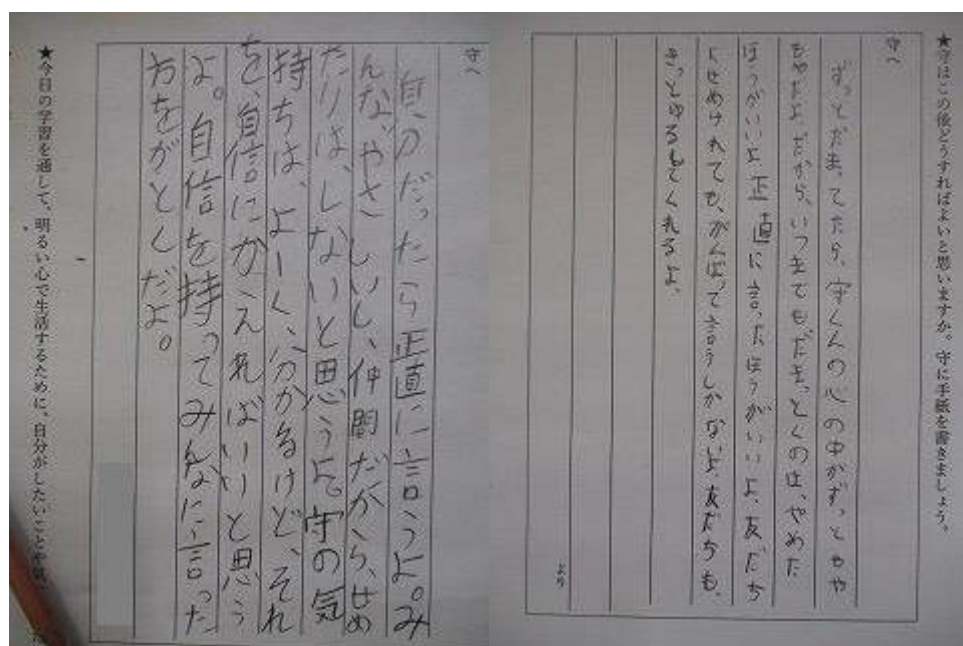 ★守はこの後どうすればよいと思いますか。守に手紙を書きましょう。
守へ
ずっとだまってたら、守くんの心の中がずっともや
もやだよ。だから、いつまでもだまっとくのは、やめた
ほうがいいよ正直に言ったほうがいいよ、友だち
にせめけれても、がんばって言うしかないよ、友だちも、
きっとゆるしてくれるよ、
より
守へ
自分だったら正直に言うよ。み
んな、やさしいし、仲間だから、せめ
たりは、しないと思うよ。守の気
持ちは、よーく、分かるけど、それ
を、自信にかえればいいと思う
よ。自信を持ってみんなに言った
方をがとくだよ。
★今日の学習を通して、明るい心で生活するために、自分がしたいことや